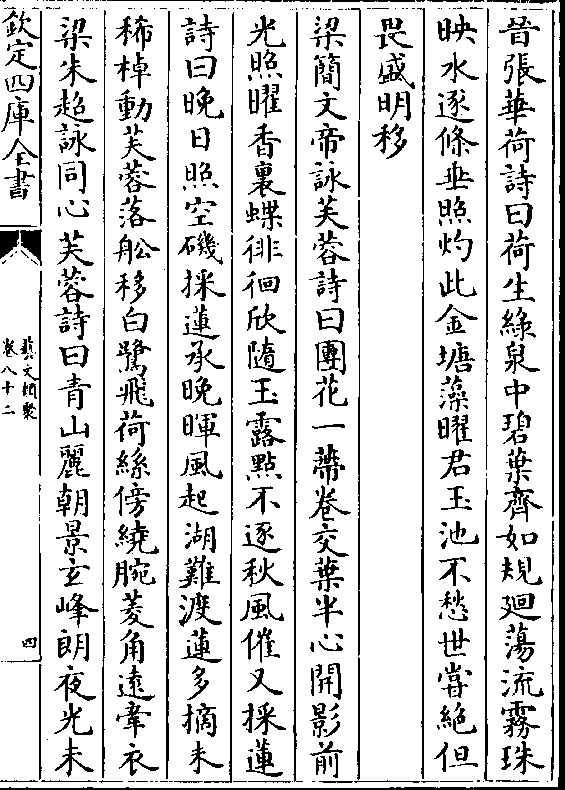 晉張華荷詩曰荷生綠泉中碧葉齊如規廻蕩流霧珠
映水逐條垂照灼此金塘藻曜君玉池不愁世嘗絶但
畏盛明移
梁簡文帝詠芙蓉詩曰團花一蔕卷交葉半心開影前
光照曜香裏蝶徘徊欣隨玉露點不逐秋風催又採蓮
詩曰晚日照空磯採蓮承晚暉風起湖難渡蓮多摘未
稀棹動芙蓉落舩移白鷺飛荷絲傍繞腕菱角遠牽衣
梁朱超詠同心芙蓉詩曰青山麗朝景玄峰朗夜光未
欽定四庫全書
藝文類聚
卷八十二
四